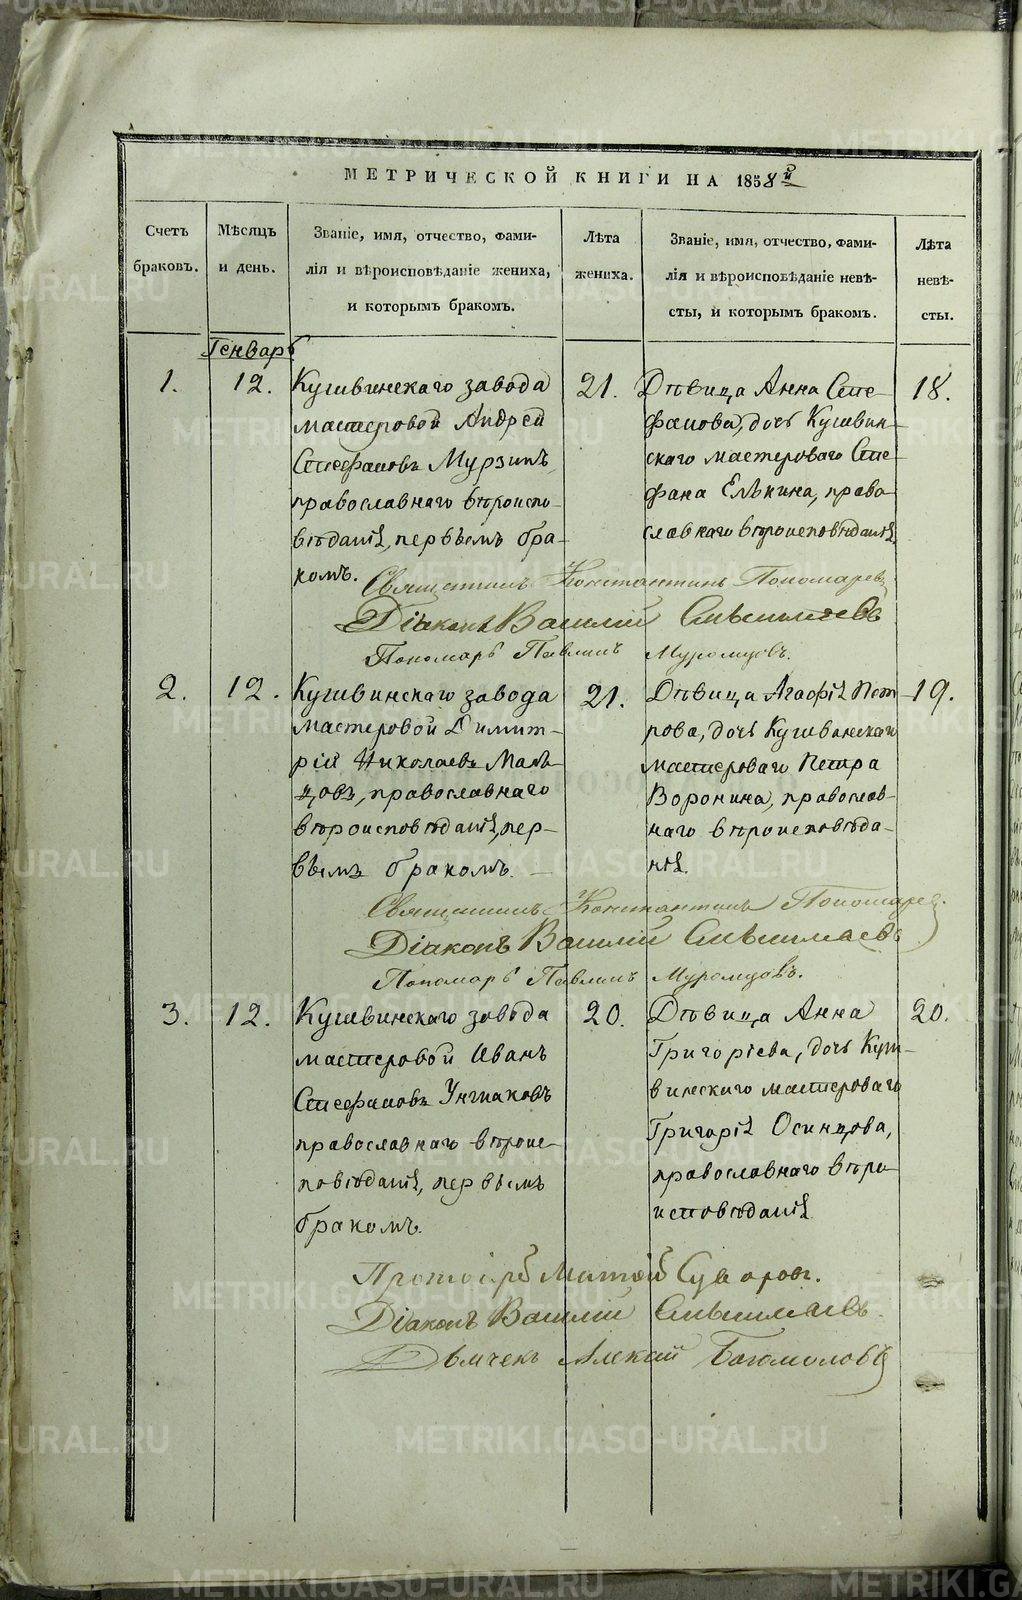 МЕТРИЧЕСКОЙ КНИГИ НА 1858й
Счетъ
браковъ.
Мѣсяцъ
и день.
Званіе, имя, отчество, фами-
лія и вѣроисповѣданіе жениха,
и которымъ бракомъ.
Лѣта
жениха.
Званіе, имя, отчество, фами-
лія и вѣроисповѣданіе невѣ-
сты, и которымъ бракомъ.
Лѣта
невѣ-
сты.
Генварь
1.
12.
Кушвинскаго завода
мастеровой Андрей
Стефановъ Мурзинъ,
православнаго вѣроиспо-
вѣданія, первымъ бра-
комъ.
21.
Дѣвица Анна Сте-
фанова, дочь Кушвин-
скаго мастероваго Сте-
фана Елькина, право-
славнаго вѣроисповѣданія.
18.
Священникъ Константинъ Пономаревъ
Діаконъ Василій
Пономарь Павлинъ Муромцовъ.
2.
12.
Кушвинскаго завода
мастеровой Димит-
рій Николаевъ Маль-
цовъ, православнаго
вѣроисповѣданія, пер-
вымъ бракомъ.
21.
Дѣвица Агафія Пет-
рова, дочь Кушвинскаго
мастероваго Петра
Воронина, православ-
наго вѣроисповѣда-
нія.
19.
Священникъ Константинъ Пономаревъ.
Діаконъ Василій
Пономарь Павлинъ Муромцовъ.
3.
12.
Кушвинскаго завода
мастеровой Иванъ
Стефановъ
православнаго вѣроис-
повѣданія, первымъ
бракомъ.
20.
Дѣвица Анна
Григоріева, дочь Куш-
винскаго мастероваго
Григорія Осинцова,
православнаго вѣро-
исповѣданія
20.
Протоіерей Матѳій Суворовъ.
Діаконъ Василій
Дьячекъ Алексій Богомоловъ
METRIKI.GASO-URAL.RU